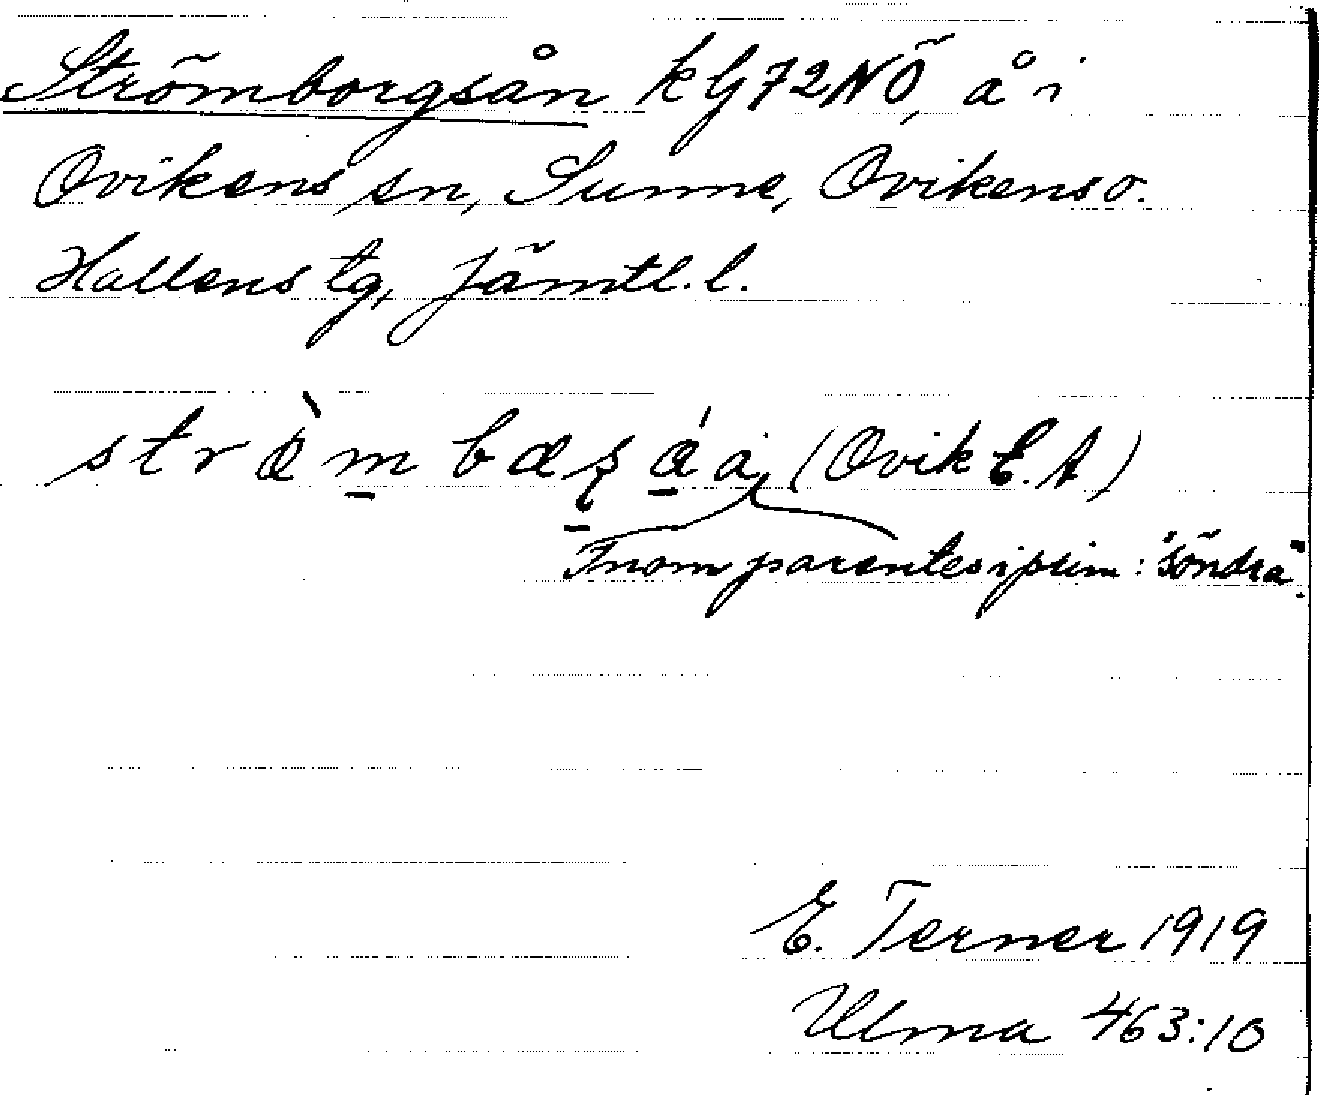 Strömborgsån kG72NÖ, å i
Ovikens sn, Sunne, Ovikens o.
Hallens tg, Jämtl. l.
(Ovik E.A)
Inom parentes ipsim: "Söndra".
E. Terner 1919
Ulma 463:10